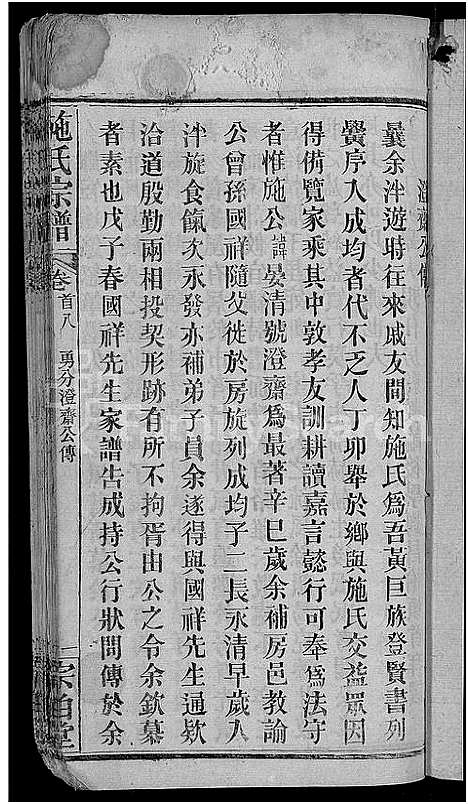 澄齋公傳
曩余泮遊時往來戚友間知施氏爲吾黃巨族登賢書列
黌序入成均者代不乏人丁卯舉於鄉與施氏交益眾因
得備覽家乘其中敦孝友訓耕讀嘉言懿行可奉爲法守
者惟施公諱晏清號澄齋爲最著辛巳歲余補房邑教諭
公曾孫國祥隨父徙於房旋列成均子二長永清早歲入
泮旋食餼次永發亦補弟子員余遂得與國祥先生通欵
洽道殷勤兩相投契形跡有所不拘胥由公之令余欽慕
者素也戊子春國祥先生家譜告成持公行狀問傳於余
施氏宗譜
卷首八
勇分澄齋公傳
一